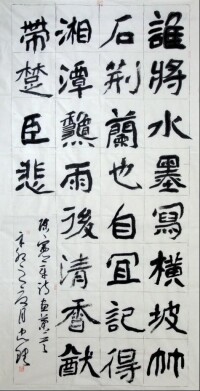 誰將水墨寫橫坡竹
石荊蘭也自宜記得
湘潭雨後清香猷
帶楚臣悲